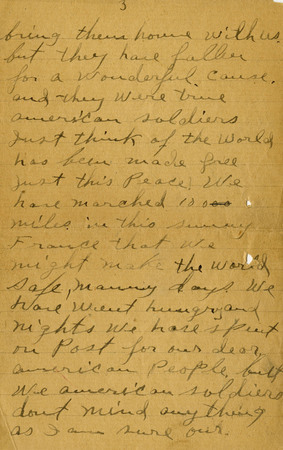 3
bring them home with us.
but they have fallen
for a wonderful cause.
and they were true
american soldiers
Just think of the World
has been made free
Just this Peace, We
have marched 1000
miles in this sunny
France that we
might make the World
safe, manny days We
have went hungry and
nights We have spent
on Post for our dear
american People, but
We american soldiers
dont mind anything
as I am sure our.